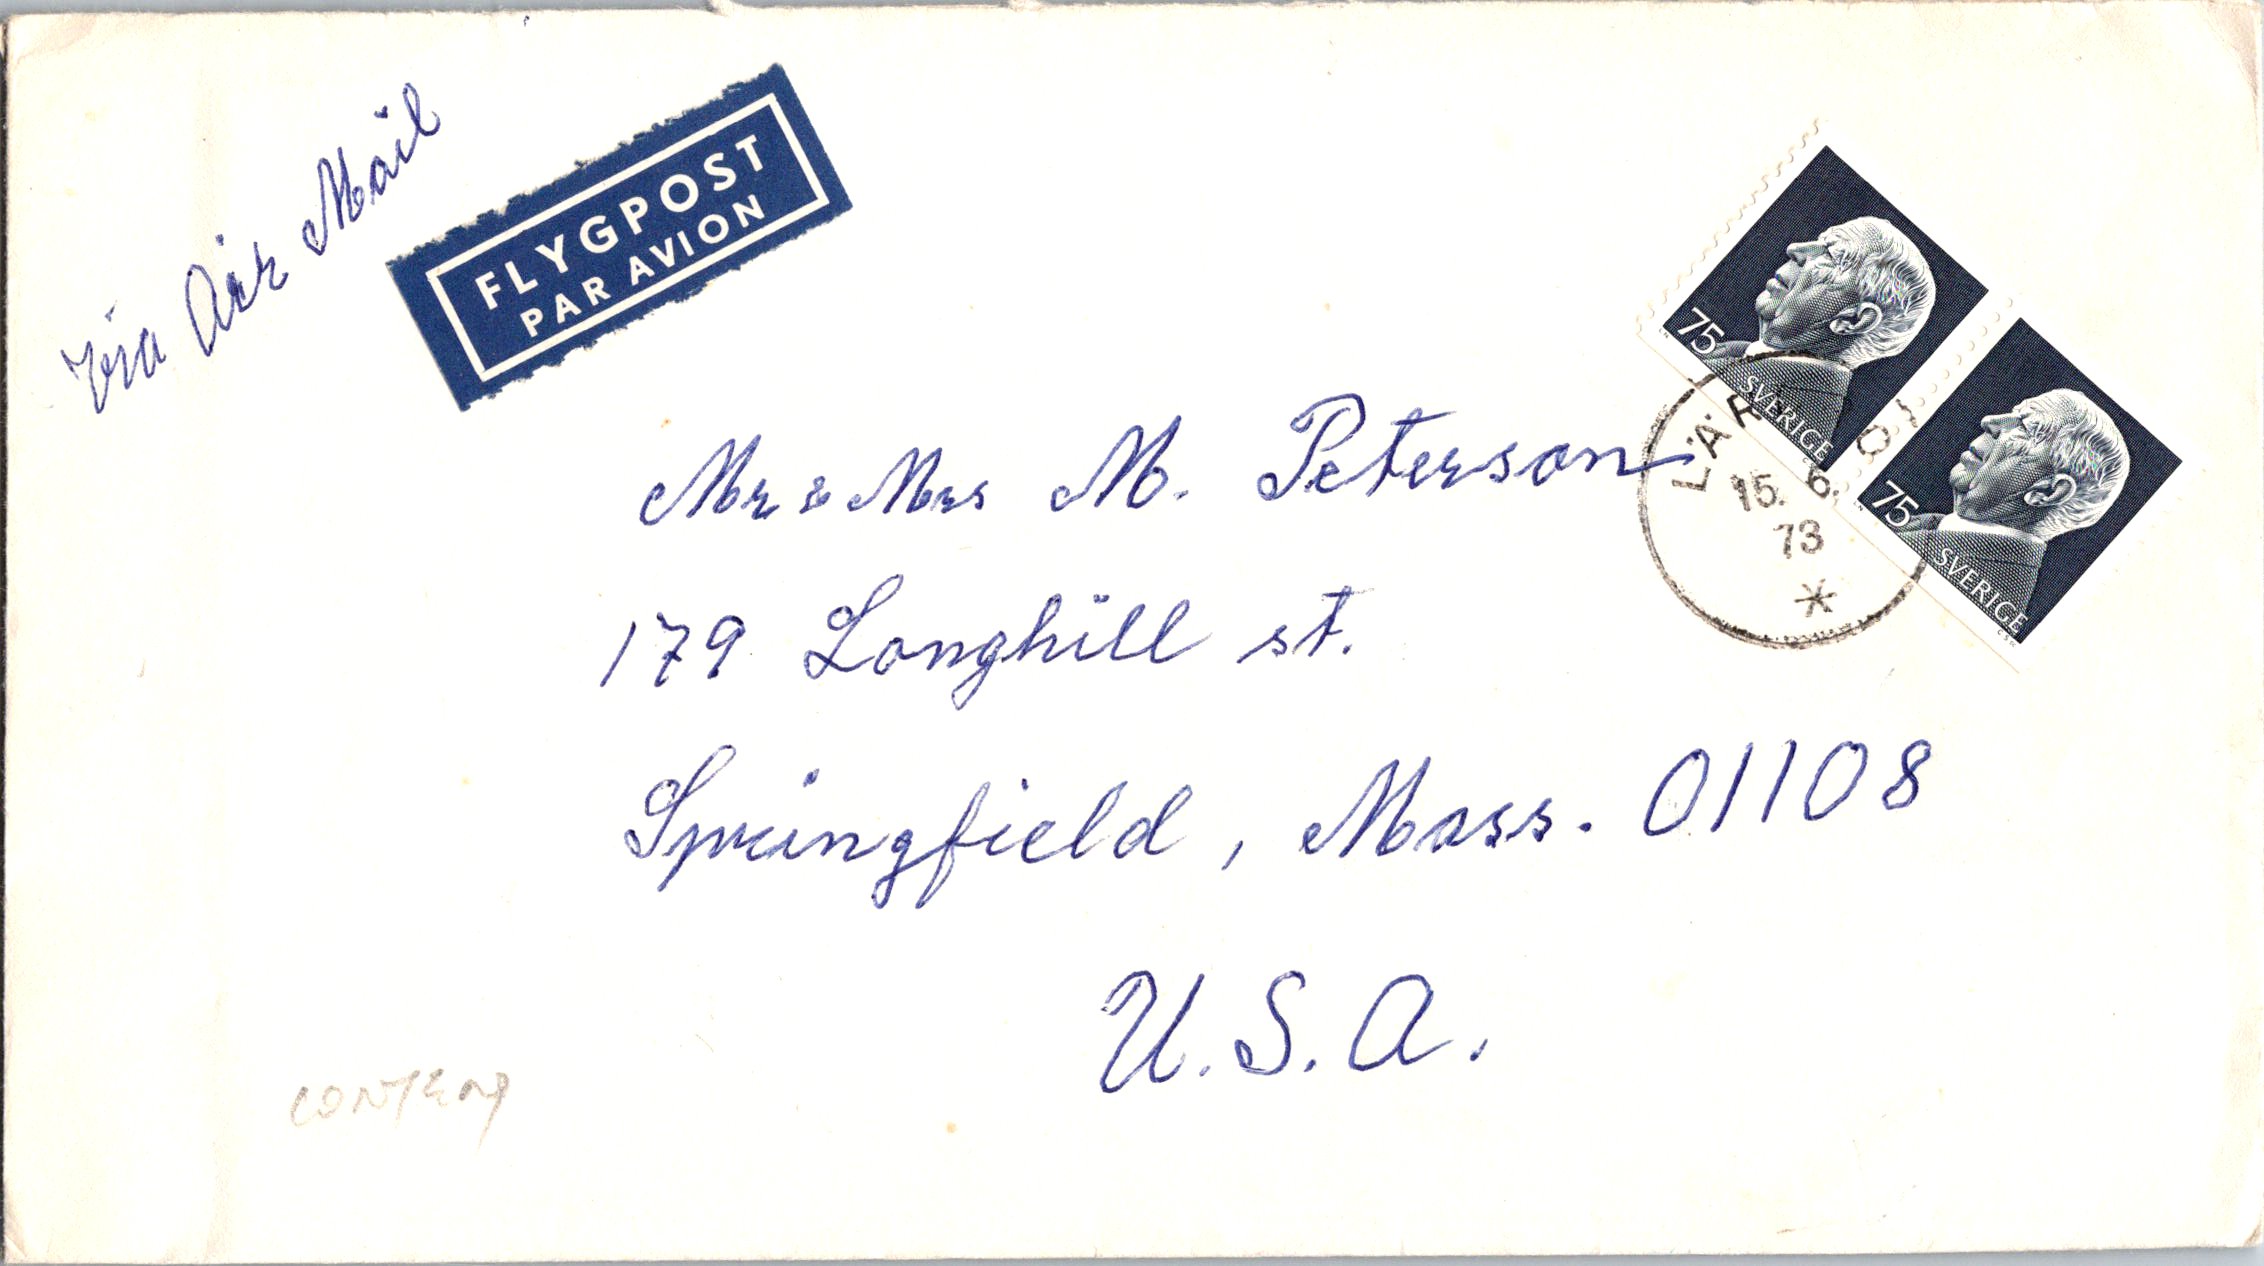 Via Air Mail
FLYGPOST
PAR AVION
75
SVERIGE
75
SVERIGE
15. 6.
73
*
Mr & Mrs M. Peterson
179 Longhill st.
Springfield, Mass. 01108
U.S.A.